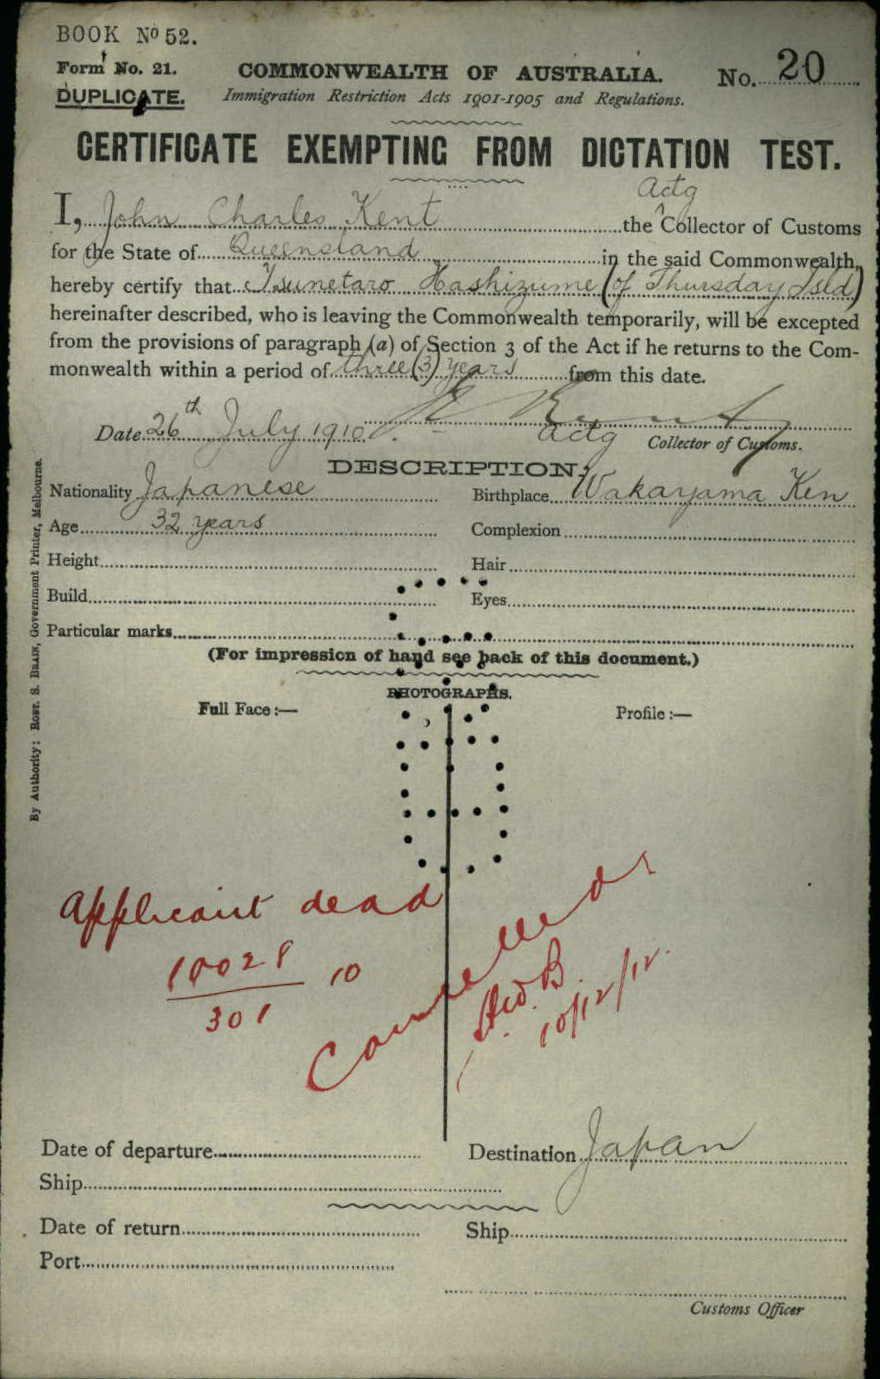 BOOK No 52.
Form No. 21.
COMMONWEALTH OF AUSTRALIA.
No. 20
DUPLICATE.
Immigration Restriction Acts 1901-1905 and Regulations.
CERTIFICATE EXEMPTING FROM DICTATION TEST.
Actg
I, John Charles Kent the Collector of Customs
for the State of Queensland in the said Commonwealth,
hereby certify that Tsunetaro Hashizume (of Thursday Isld)
hereinafter described, who is leaving the Commonwealth temporarily, will be excepted
from the provisions of paragraph (a) of Section 3 of the Act if he returns to the Com-
monwealth within a period of three (3) years from this date.
Date 26th July 1910. Kent
actg Collector of Customs.
DESCRIPTION.
Nationality Japanese Birthplace Wakayama Ken
Age 32 years Complexion
Height Hair
Build Eyes
Particular marks
(For impression of hand see back of this document.)
PHOTOGRAPHS.
Full Face :— Profile :—
Applicant dead
10028 10
301
Cancelled
10/12/12.
Date of departure Destination Japan
Ship
Date of return Ship
Port
Customs Officer
By Authority: ROBT. S. BRAIN, Government Printer, Melbourne.